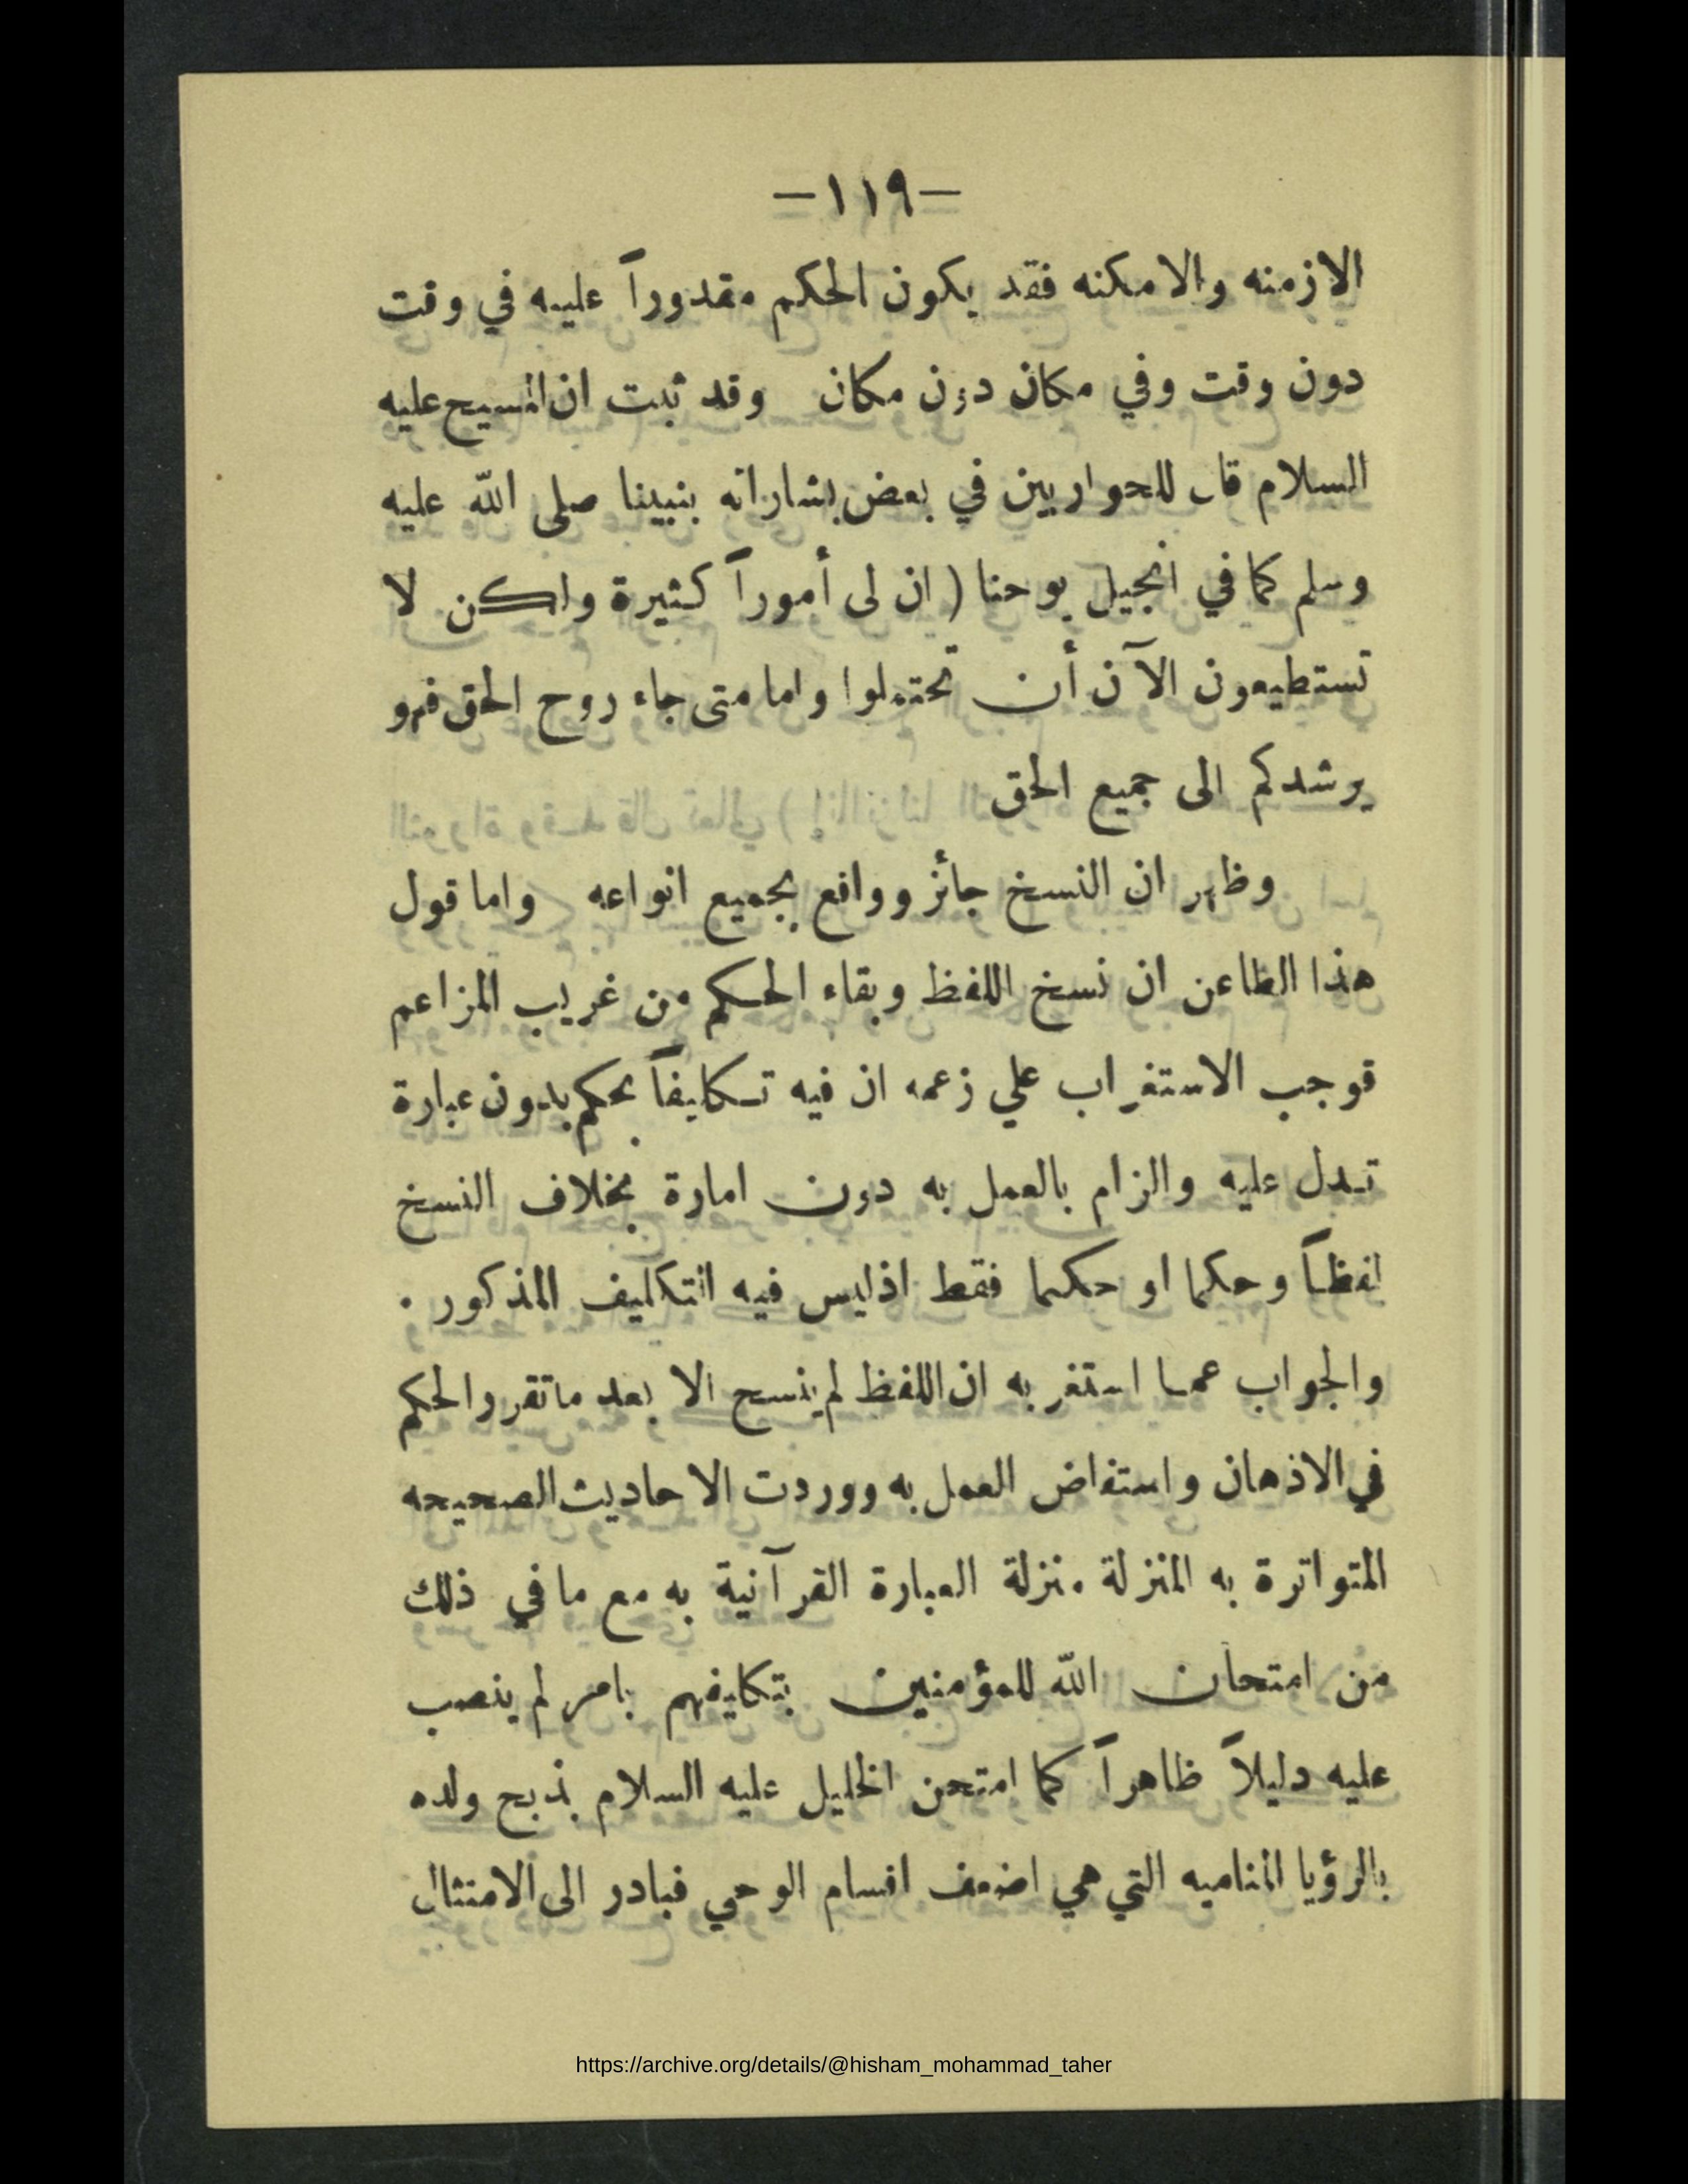 -١١٩-
الازمنه والامكنه فقد يكون الحكم مقدوراً عليه في وقت
دون وقت وفي مكان دون مكان وقد ثبت ان المسيح عليه
السلام قال للحواريين في بعض بشاراته بنبينا صلى الله عليه
وسلم كما في انجيل يوحنا ( ان لى أموراً كثيرة ولكن لا
تستطيعون الآن أن تحتملوا واما متى جاء روح الحق فهو
يرشدكم الى جميع الحق
وظهر ان النسخ جائز وواقع بجميع انواعه واما قول
هذا الطاعن ان نسخ اللفظ وبقاء الحكم من غريب المزاعم
فوجب الاستغراب علي زعمه ان فيه تكليفاً بحكم بدون عبارة
تدل عليه والزام بالعمل به دون امارة بخلاف النسخ
لفظاً وحكما او حكما فقط اذليس فيه التكليف المذكور .
والجواب عما استغربه ان اللفظ لم ينسح الا بعد ماتقرر الحكم
في الاذهان واستفاض العمل به ووردت الاحاديث الصحيحه
المتواترة به المنزلة منزلة العبارة القرآنية به مع ما في ذلك
من امتحان الله للمؤمنين بتكليفهم بامر لم ينصب
عليه دليلاً ظاهراً كما امتحن الخليل عليه السلام بذبح ولده
بالرؤيا المناميه التي هي اضعف اقسام الوحي فبادر الى الامتثال
https://archive.org/details/@hisham_mohammad_taher